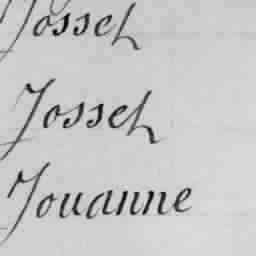 Josset
Josset
Jouanne